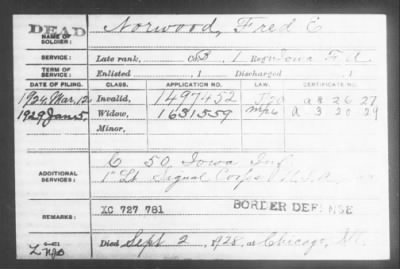 DEAD
NAME OF SOLDIER: Norwood, Fred E
SERVICE: Late rank, Co. B, 1 Reg't Iowa F A
TERM OF SERVICE: Enlisted , 1 Discharged , 1
DATE OF FILING. CLASS. APPLICATION NO. LAW. CERTIFICATE NO.
1924 Mar, 12 Invalid, 1497452 a 8 26 27
1929 Jan 5 Widow, 1631559 a 3 20 29
Minor,
ADDITIONAL SERVICES: C 50 Iowa Inf
1" Lt Signal Corps U.S.A
REMARKS: XC 727 781 BORDER DEFENSE
Died Sept 2, 1928, at Chicago, Ill.